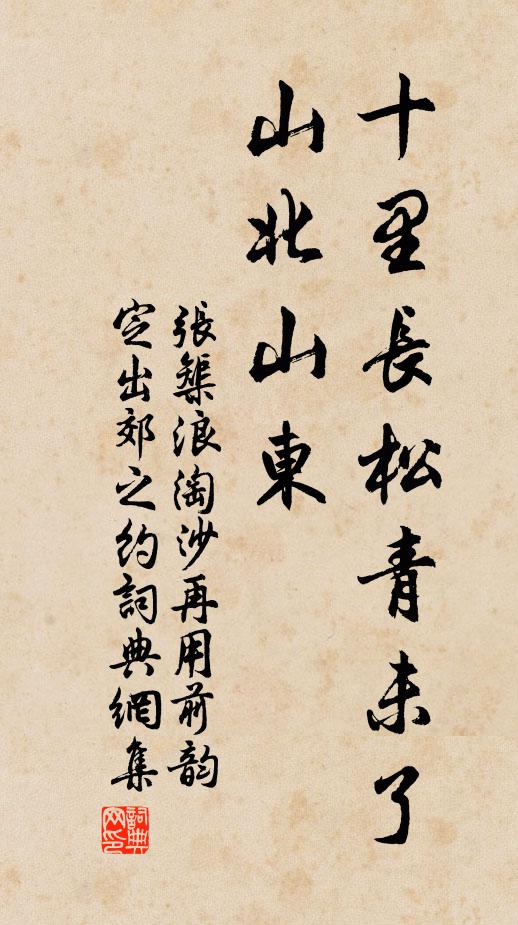 十里長松青未了
山北山東
張榘浪淘沙再用前韵
定出郊之約詞典網集
詞典
网印